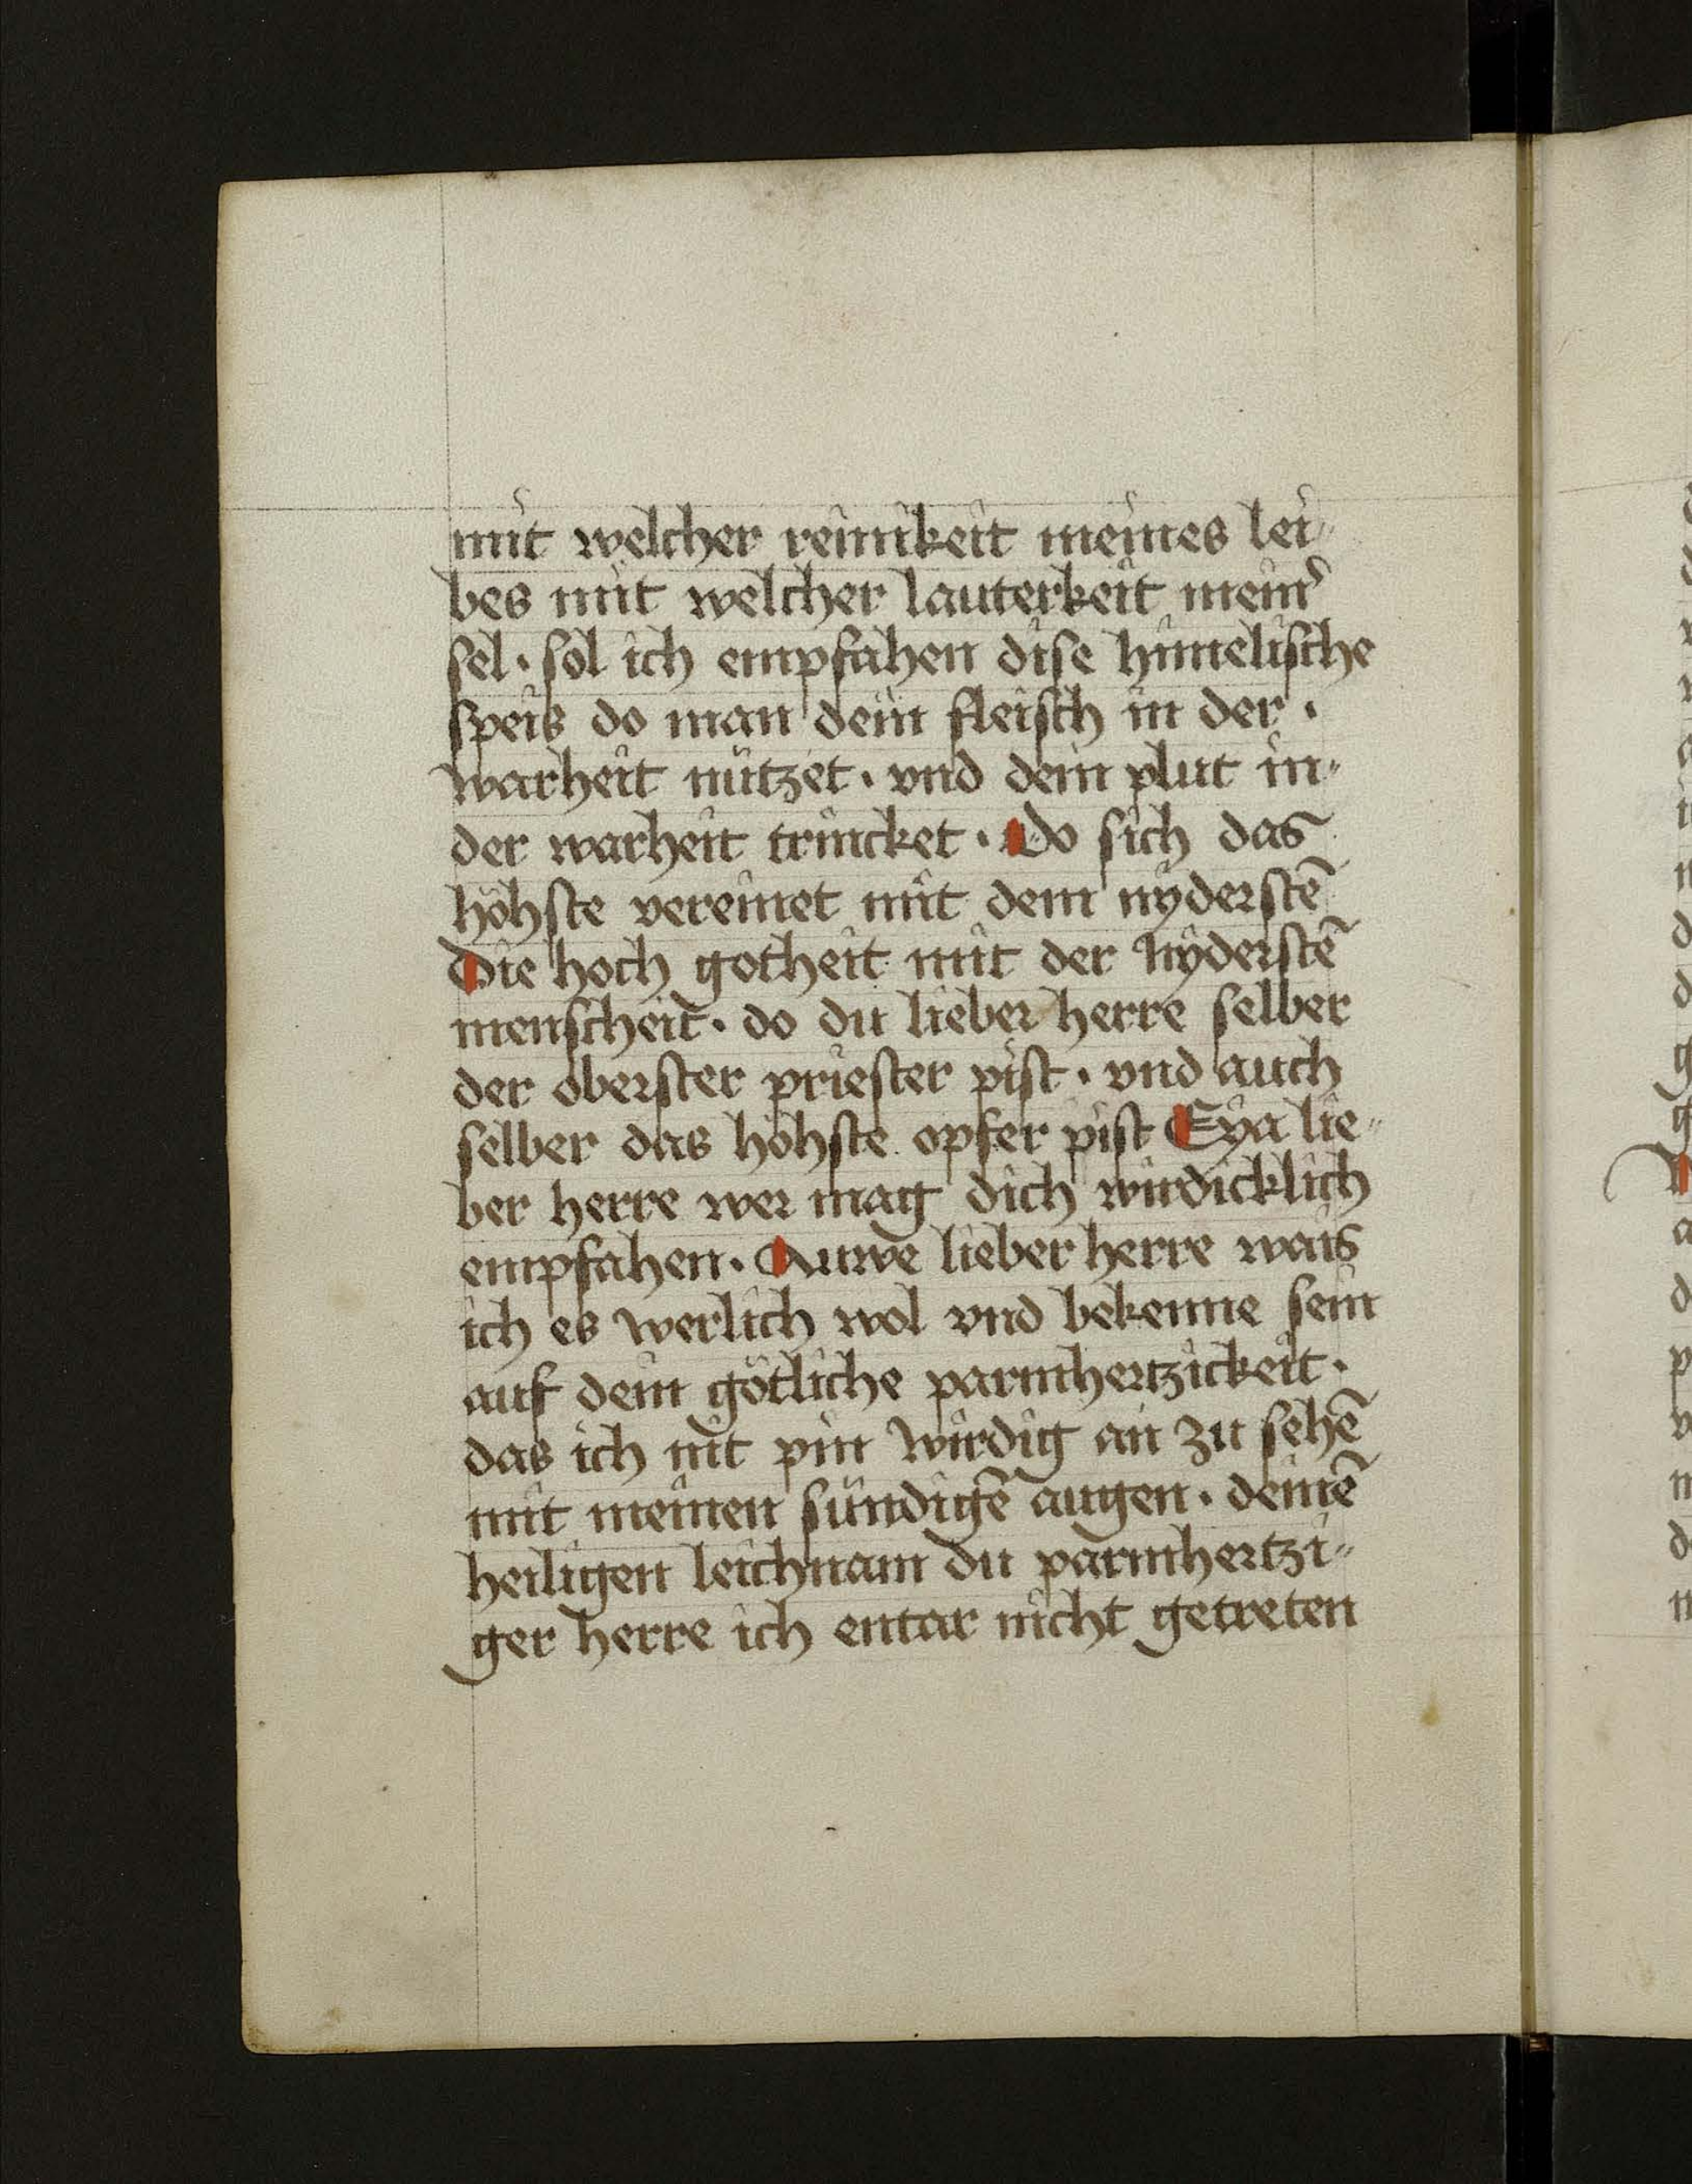 mit welcher reinikeit meines lei„
bes mit welcher lauterkeit mein᷑
sel · sol ich empfahen dise himelische
speis do man dein fleisch in der ·
warheit nützet · vnd dein plut in„
der warheit trincket · Do sich das
höhste vereinet mit dem nyderstē
Die hoch gotheit mit der nyderstē
menscheit · do du lieber herre selber
der oberster priester pist · vnd auch
selber das höhste opfer pist Eya lie„
ber herre wer mag dich wirdicklich
empfahen · Auwe lieber herre wais
ich es werlich wol vnd bekenne sein
auf dein götliche parmhertzickeit ·
das ich nit pin wirdig an zu sehē
mit meinen sündigē augen · deinē
heiligen leichnam du parmhertzi„
ger herre ich entar nicht getreten